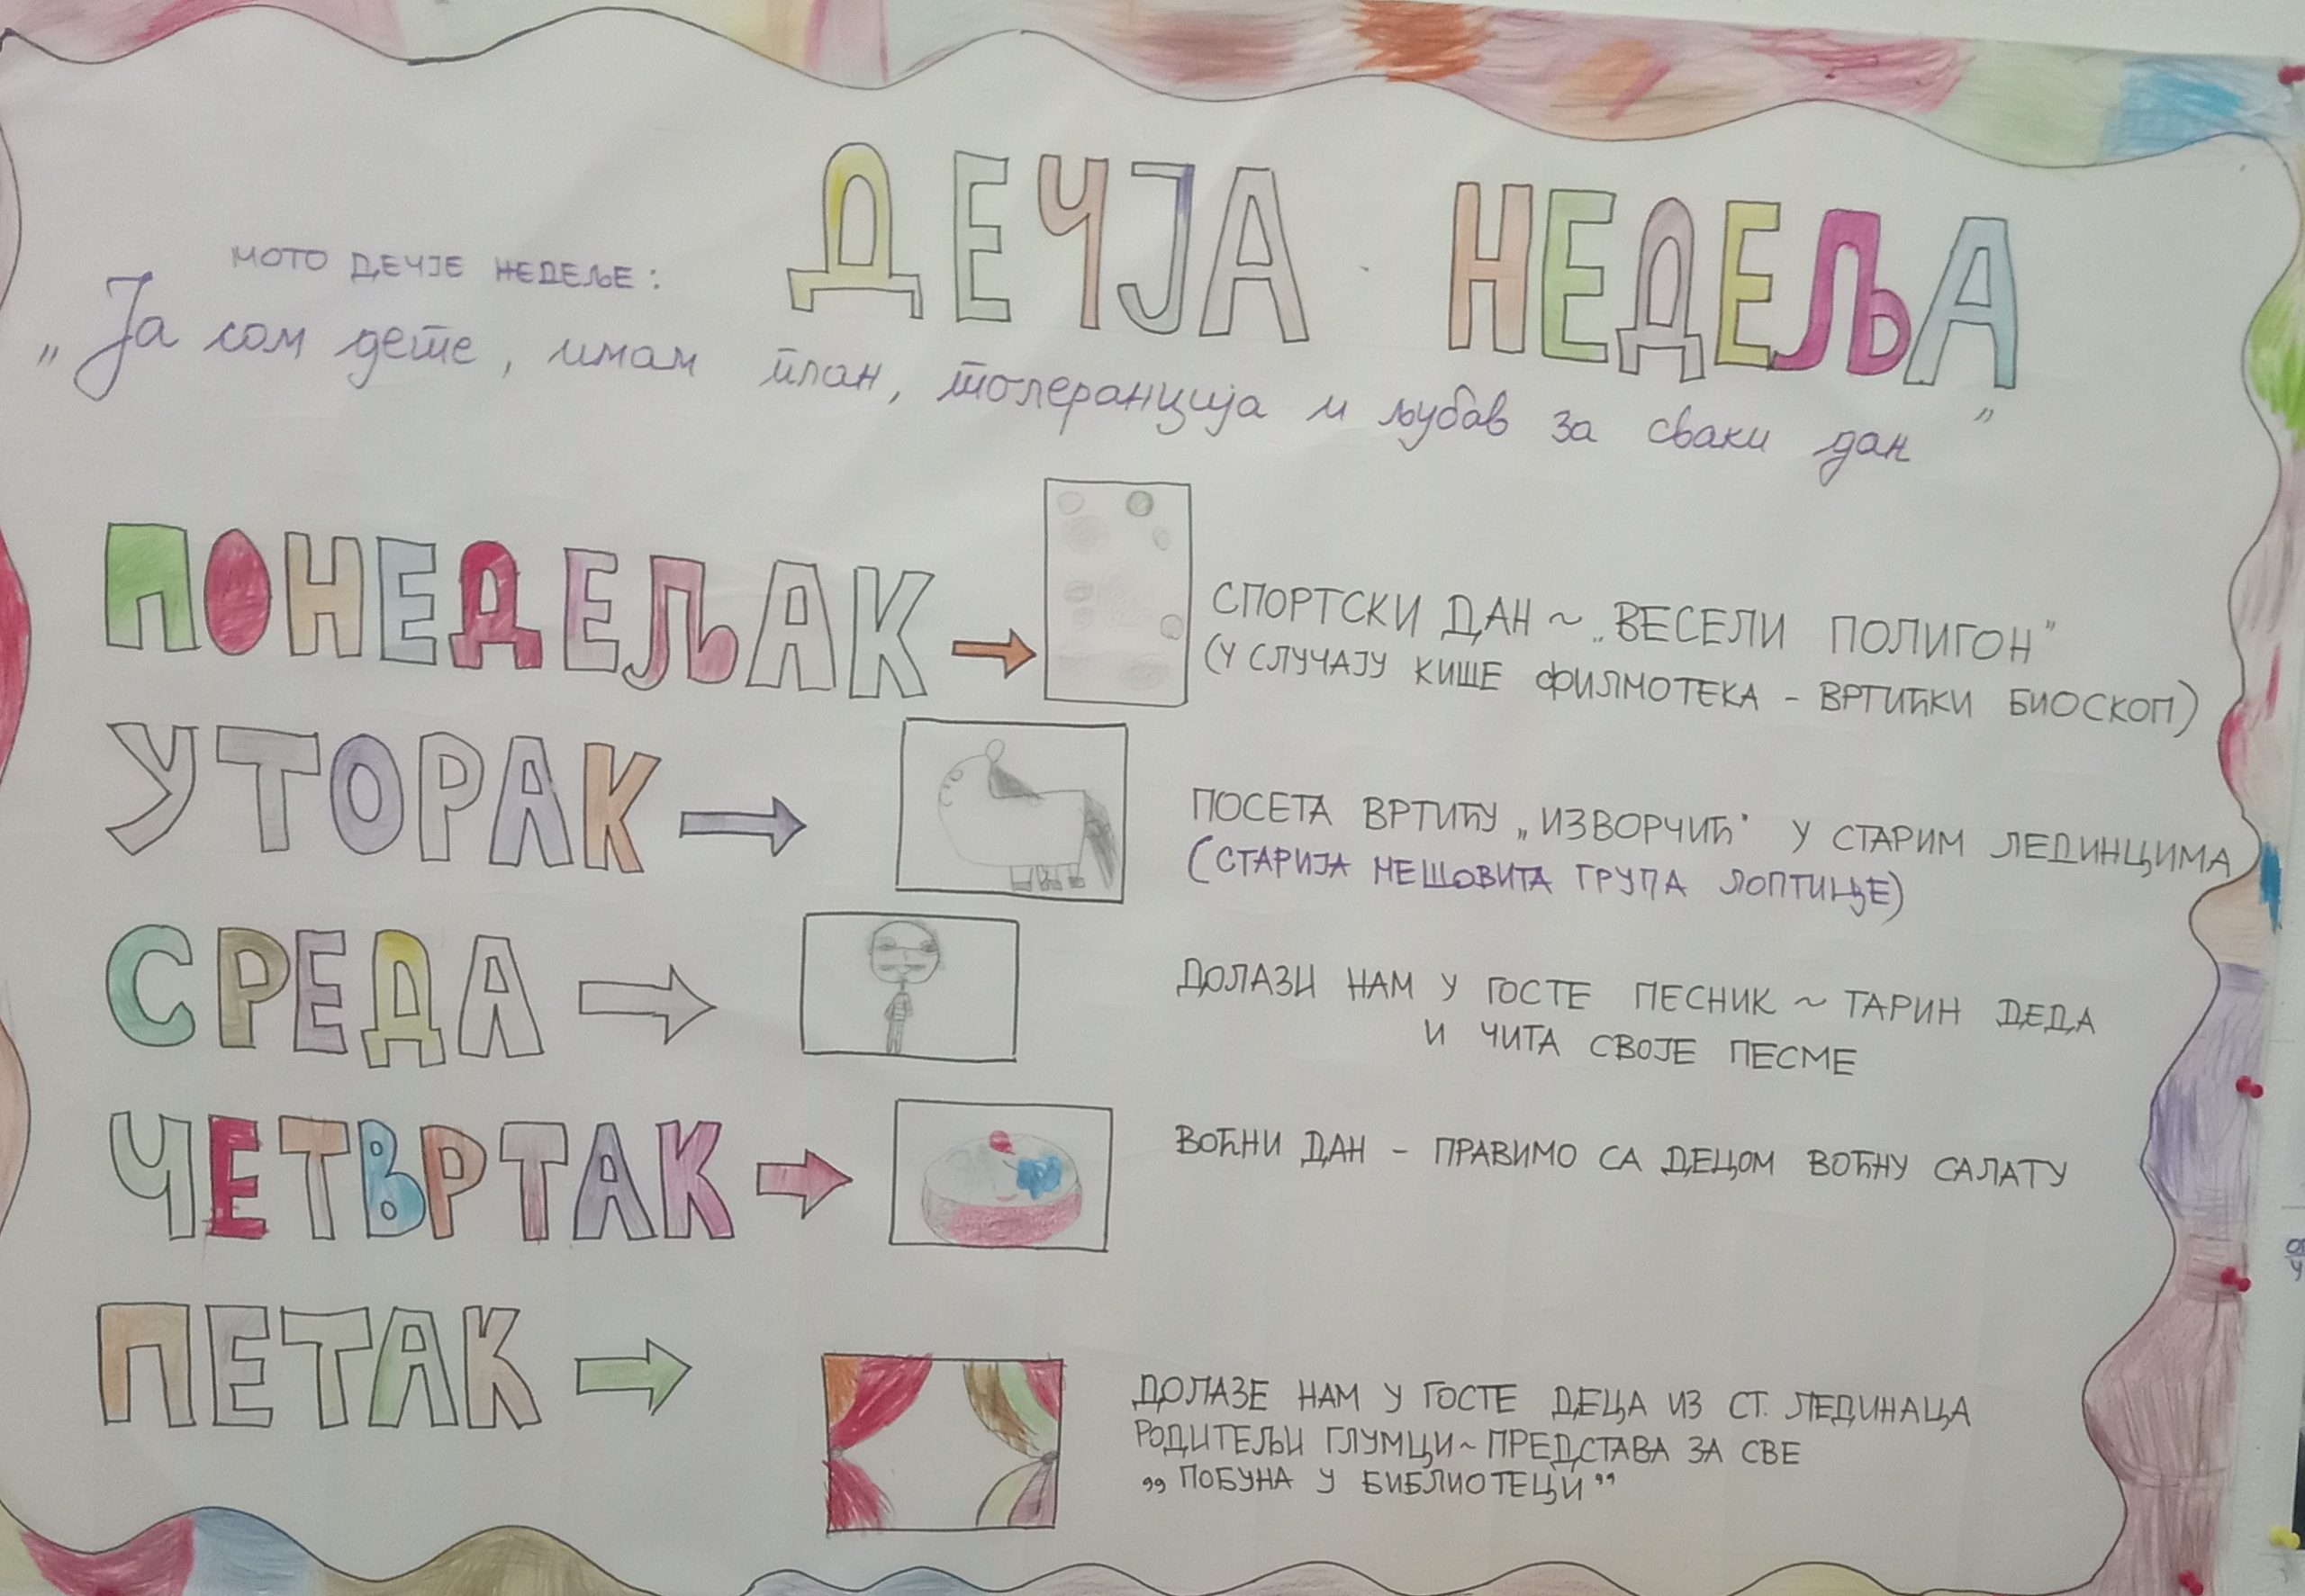 ДЕЧЈА НЕДЕЉА
МОТО ДЕЧЈЕ НЕДЕЉЕ:
„Ја сам дете, имам план, толеранција и љубав за сваки дан"
ПОНЕДЕЉАК
СПОРТСКИ ДАН ~ „ВЕСЕЛИ ПОЛИГОН"
(У СЛУЧАЈУ КИШЕ ФИЛМОТЕКА - ВРТИЋКИ БИОСКОП)
УТОРАК
ПОСЕТА ВРТИЋУ „ИЗВОРЧИЋ" У СТАРИМ ЛЕДИНЦИМА
(СТАРИЈА МЕШОВИТА ГРУПА ЛОПТИЦЕ)
СРЕДА
ДОЛАЗИ НАМ У ГОСТЕ ПЕСНИК ~ ТАРИН ДЕДА
И ЧИТА СВОЈЕ ПЕСМЕ
ЧЕТВРТАК
ВОЋНИ ДАН - ПРАВИМО СА ДЕЦОМ ВОЋНУ САЛАТУ
ПЕТАК
ДОЛАЗЕ НАМ У ГОСТЕ ДЕЦА ИЗ СТ. ЛЕДИНАЦА
РОДИТЕЉИ ГЛУМЦИ ~ ПРЕДСТАВА ЗА СВЕ
„ПОБУНА У БИБЛИОТЕЦИ"